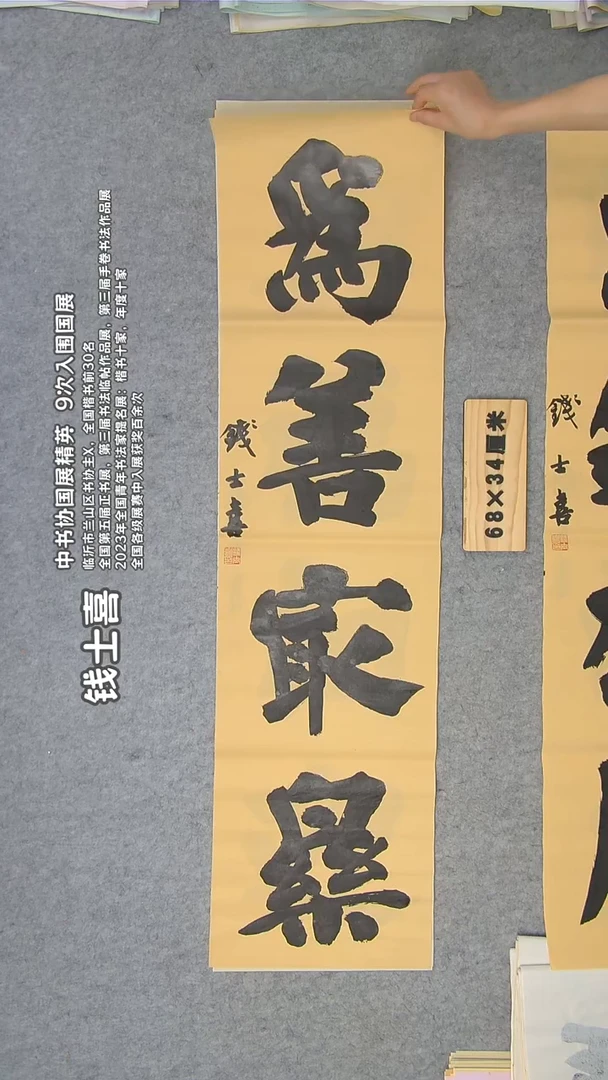 钱士喜
中书协国展精英 9次入围国展
临沂市兰山区书协主X，全国楷书前30名
全国第五届正书展，第三届书法临帖作品展，第三届手卷书法作品展
2023年全国青年书法家提名展；楷书十家，年度十家
全国各级展赛中入展获奖百余次
為善冣樂
錢士喜
68×34厘米
錢士喜